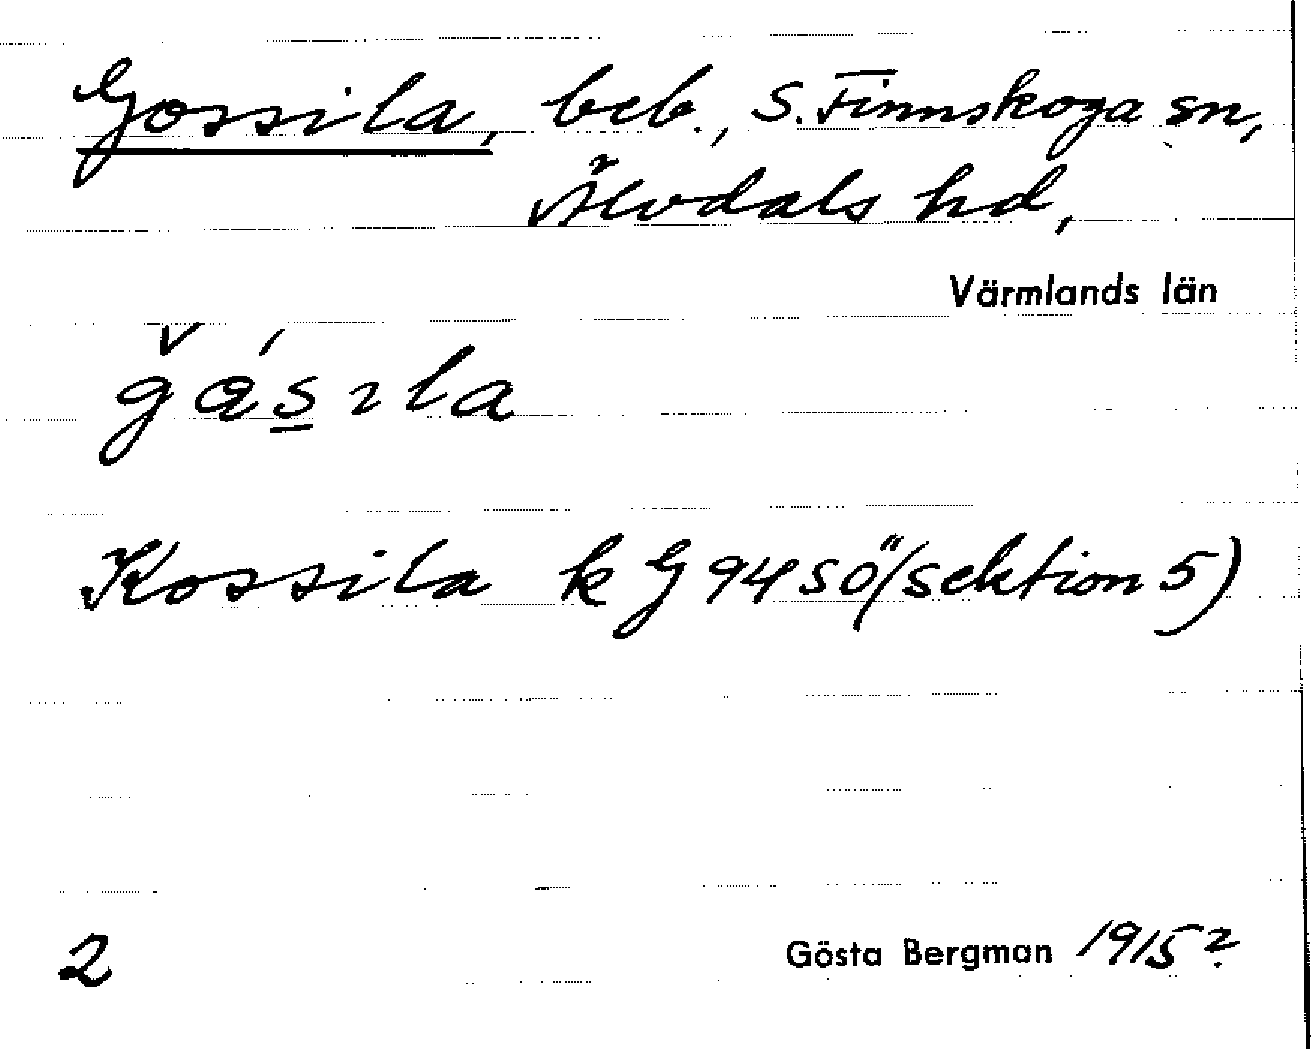 Gossila, beb., S. Finnskoga sn,
Älvdals hd,
Värmlands län
Kossila k G 94 SÖ (sektion 5)
2 Gösta Bergman 1915?